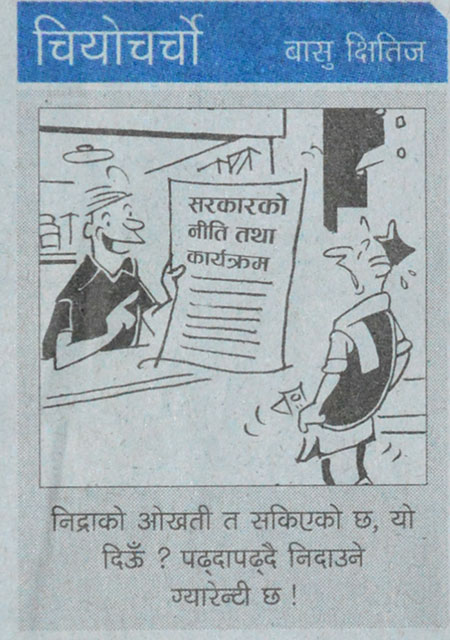 चियोचर्चो
बासु क्षितिज
सरकारको
नीति तथा
कार्यक्रम
निद्राको ओखती त सकिएको छ, यो
दिऊँ ? पढ्दापढ्दै निदाउने
ग्यारेन्टी छ !